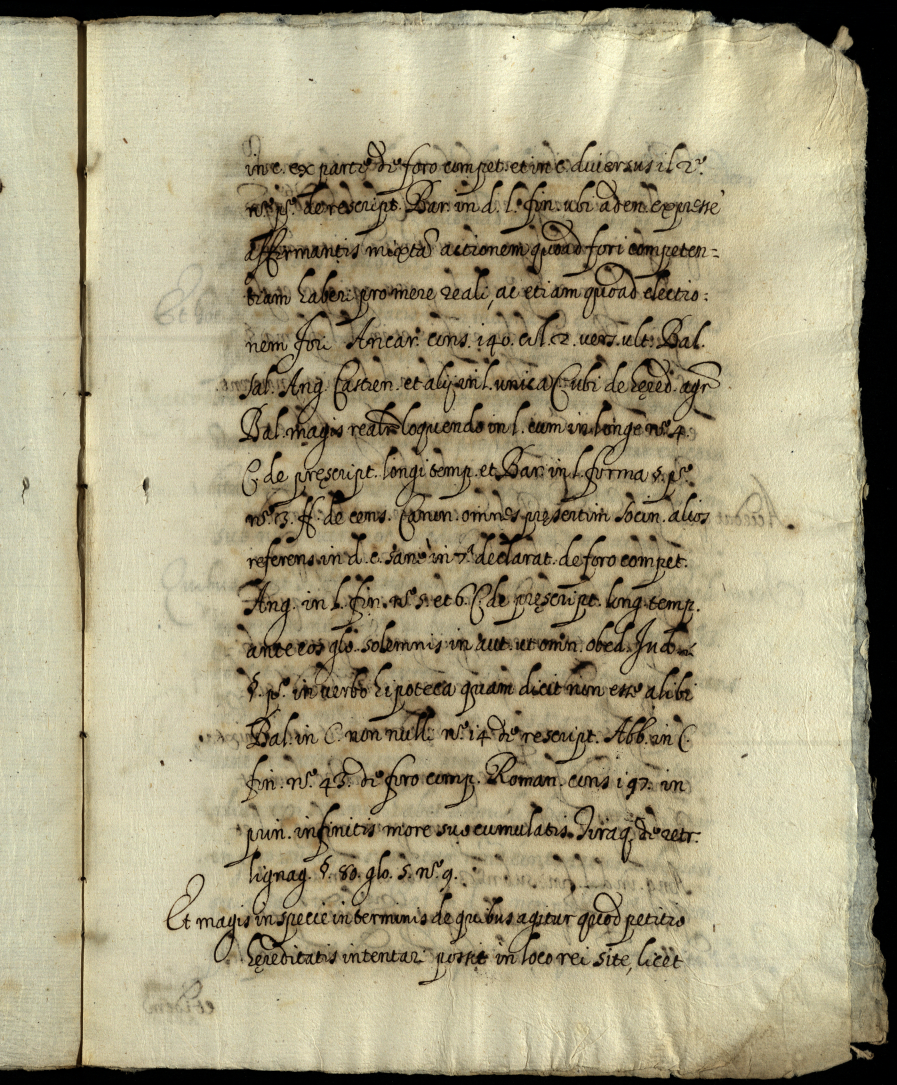 in c. ex parte de foro compet. et in c. duiersus il 2.º
nº. pº. de rescript. Bar. in d. l. fin. ubi adden. expresse
affirmantis mixta actionem quoad fori competen-
tiam haberi pro mere reali, ac etiam quoad electio:
nem fori Ancar. cons. 140. col. 2. vers. ult: Bal.
Sal. Ang. Castren. et alij in l. unica C. ubi de hęred. agr
Bal. magis realr loquendo in l. cum in longe nº. 4.
C. de pręscript. longi temp. et Bar. in l. forma §. pº.
nº. 3. ff. de cens. Canon. omnes pręsertim Socin. alios
referens in d. c. sane in 7ª declarat. de foro compet.
Ang. in l. fin. nº. 5. et 6. C. de pręscript. long. temp.
ante eos glo. solemnis in aut. ut omn. obed. Jud.
§. pº. in verbo hipoteca quam dicit non esse alibi
Bal. in C. non null: nº. 14 de rescript. Abb. in C.
fin. nº. 43. de foro comp. Roman. cons 197. in
prin. infinitis more suo cumulatis Tiraq. de retr.
lignag. §. 80. glo. 5. nº. 9.
Et magis in specie in terminis de quibus agitur quod petitio
hęreditatis intentari possit in loco rei site, licet